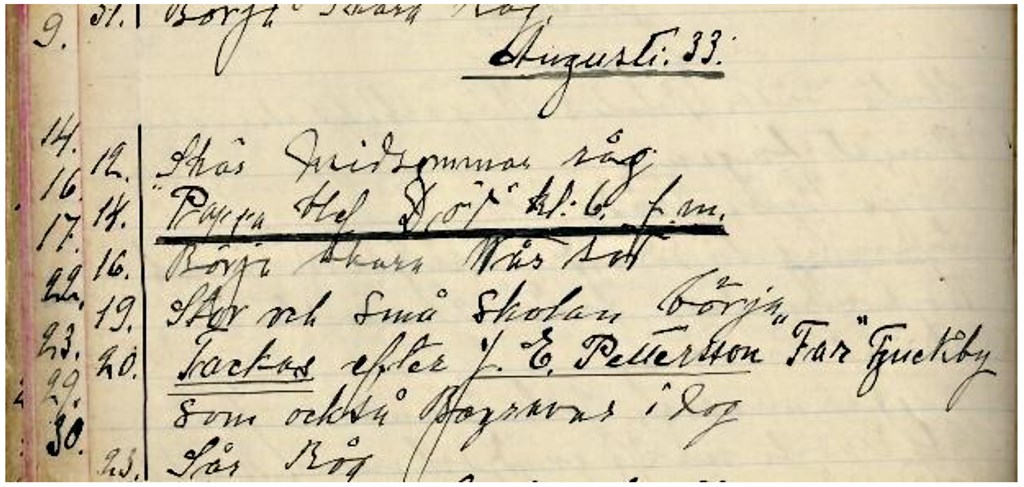 9. 31. Börja skära Råg.
Augusti. 33.
14.
12. Skäs midsommar råg
16.
14. "Pappa blef Död" kl: 6. f.m.
17.
16. Börja skära Vår
22.
19. Stor och små skolan börja
23.
20. Tackas efter J. E. Pettersson "Far" Tjuckby
29.
som också Begravas i dag
30.
23. Sås Råg